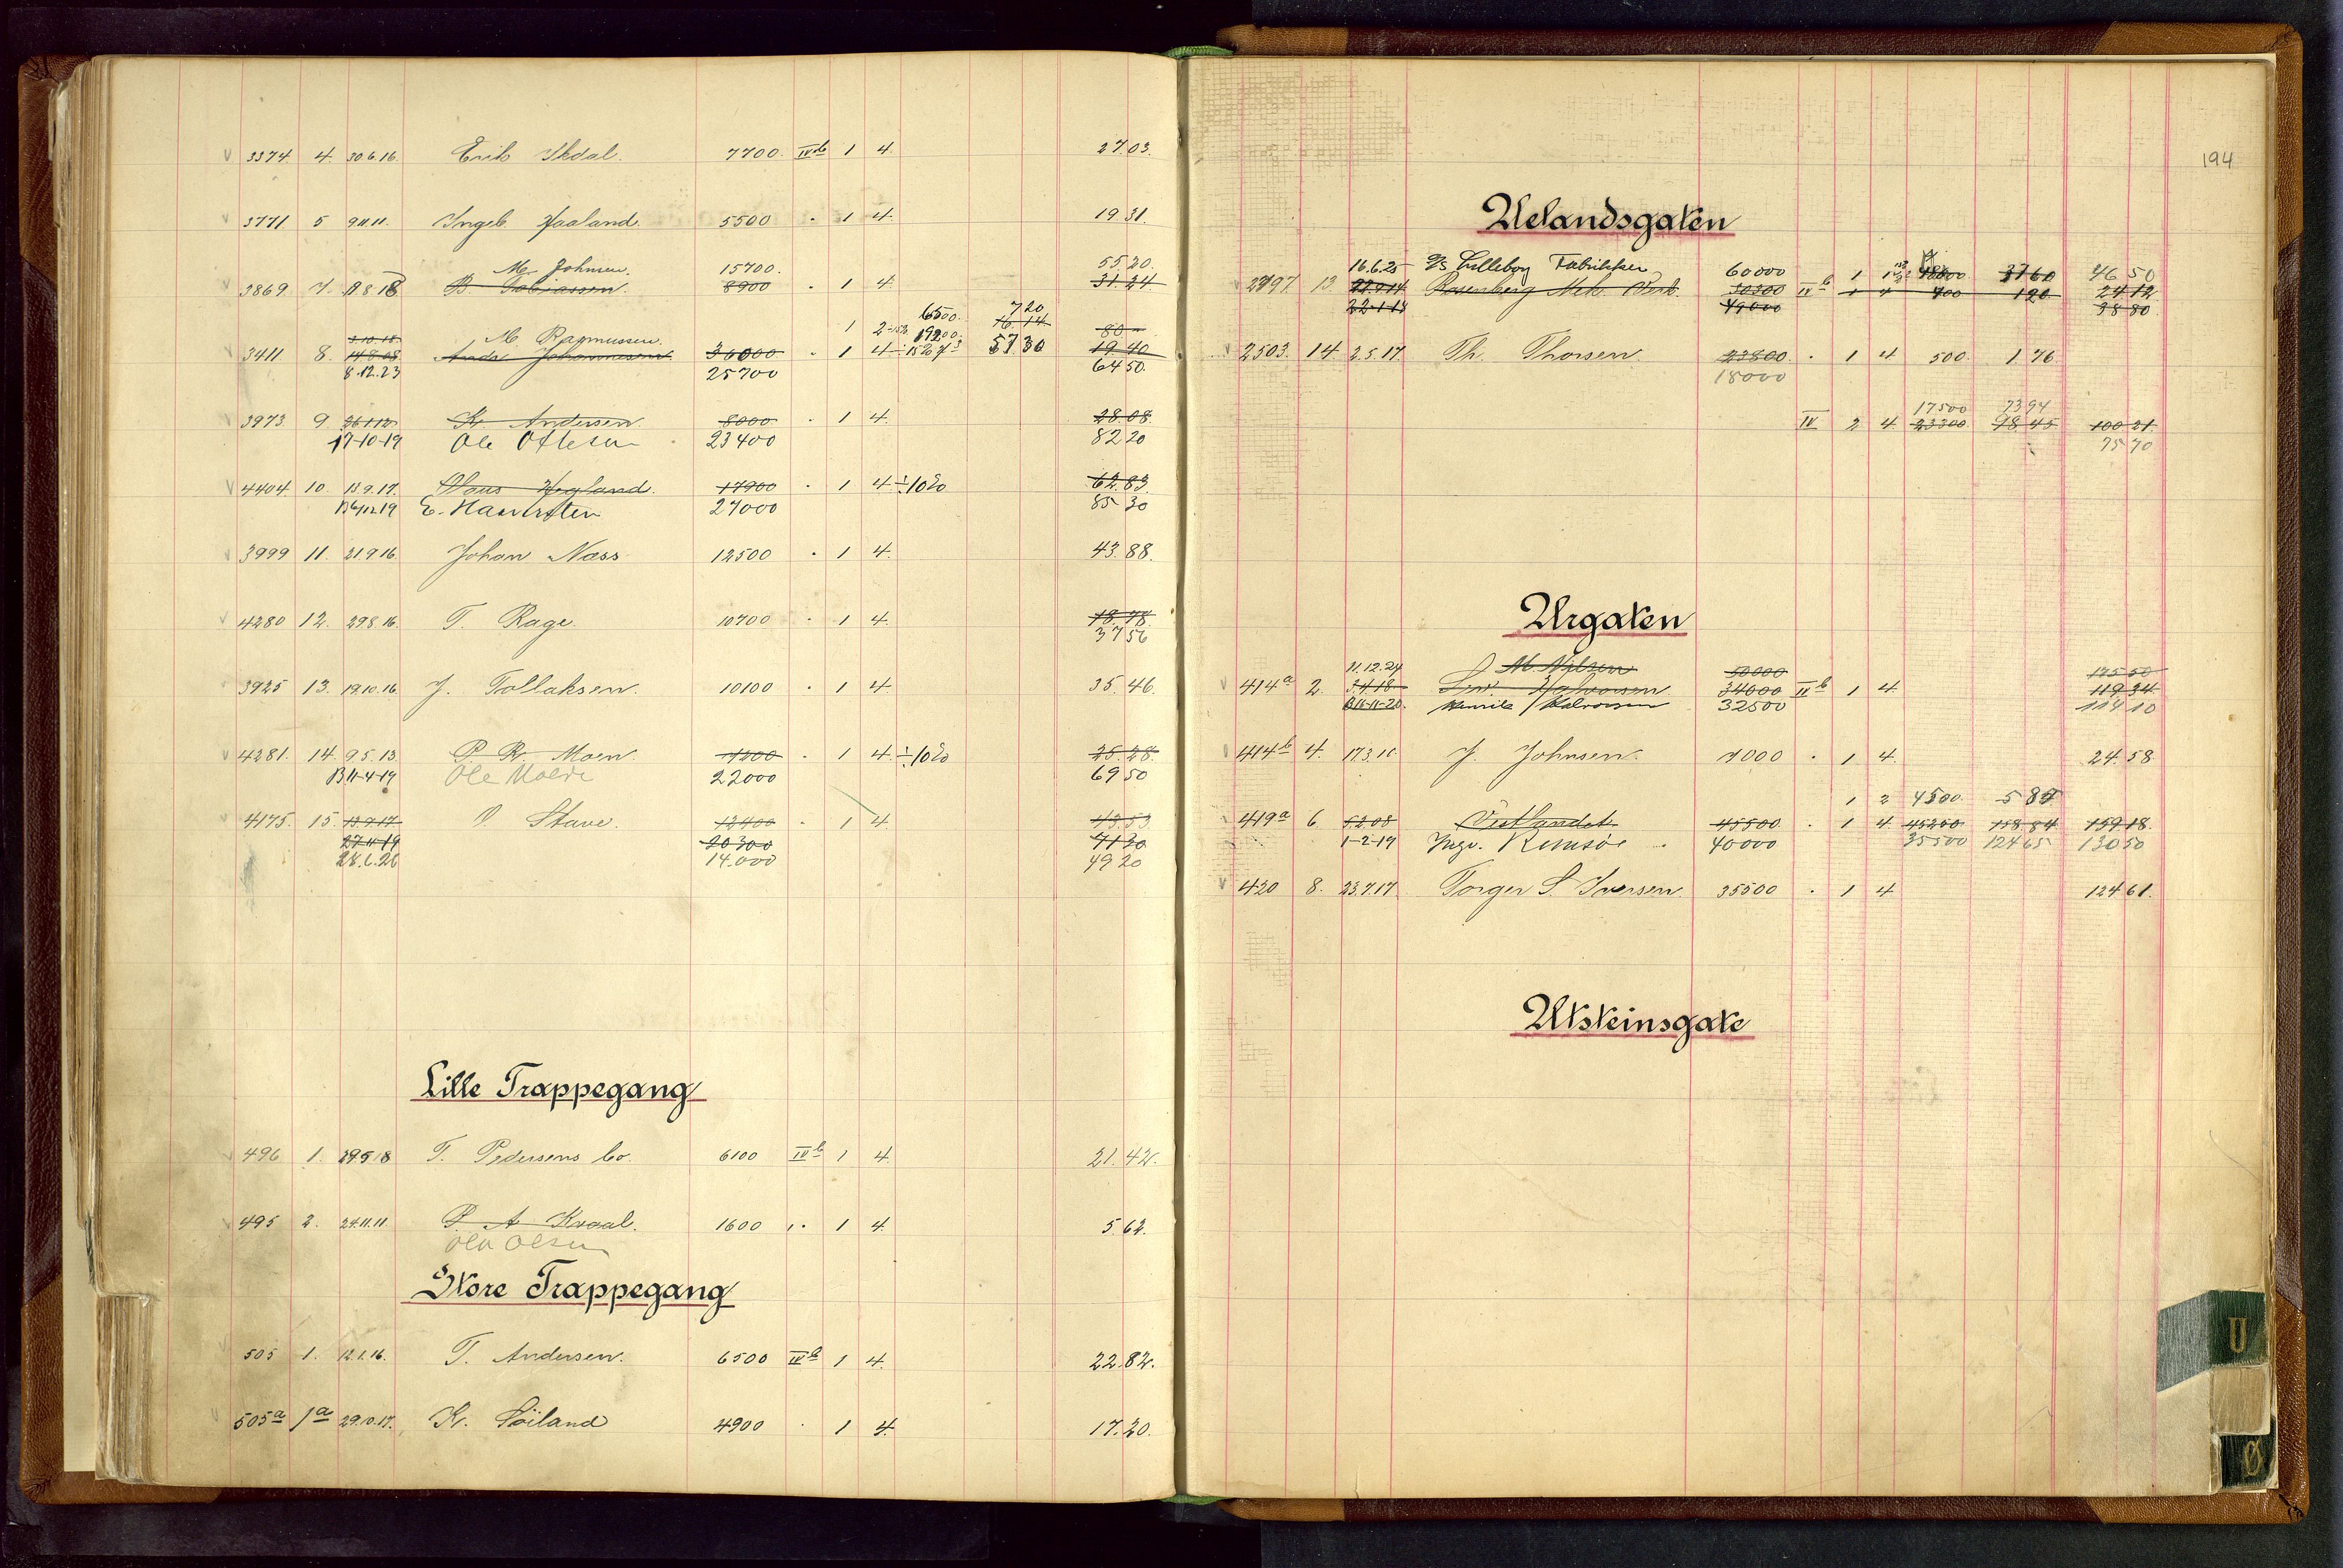 3374 4. 30.6.16. Erik Skdal. 7700. IVb 1 4. 27.03.
3771 5 9.11.11. Ingeb. Haaland. 5500 · 1 4. 19 31.
M. Johnsen. 15700. 55.20.
3869 7. B. Tobiassen. 8900 · 1 4. 31.24
6500. 720
1 2 19200. 16.14 80
3.10.18. M. Rasmussen.
3411 8. 14.8.08 Johannesen 36000 · 1 4 57 30 19.40
8.12.23 25700 64 50.
3973 9 K. Andersen 8000 · 1 4. 28.08.
17-10-19 Ole Ottesen 23400 82 20
4404 10. 13.9.17. Hegland. 17900 · 1 4 ÷10% 62.83
E. 27000 85 30
3999 11. 21.9.16. Johan Næss 12500 · 1 4. 43.88.
4280 12. 29.8.16. T. Rage. 10700 · 1 4. 18.78.
37 56
3925 13. 19.10.16. J. Tollaksen. 10100 · 1 4. 35.46.
4281. 14. 9.5.13. P. R. Moen. 7200 · 1 4. ÷10% 25.28.
B 11-4-19 Ole 22000 69 50
4175. 15. 13.9.17 O. Stave. 12400 · 1 4. 43.53
27-11-19 20300 71 20
28.6.26 14.000 49 20
Lille Trappegang
496 1. 29.5.18 T. Pedersens bo. 6100 IVb 1 4. 21.42.
495 2. 24.11.11. P. A. Kvaal. 1600 · 1 4 5.62.
Ola Olsen
Store Trappegang
505 1. 12.1.16. T. Andersen. 6500 IVb 1 4. 22.82.
505a 1a 29.10.17. Kr. Söiland 4900 · 1 4. 17.20.
194
Uelandsgaten
16.6.25 A/S Lilleborg Fabrikker 60000 1 3760 46 50
2497 13 Rosenberg Mek. Verk. 30300 IVb 1 4 700 120 24 12
22-1-18 49000 38 80
2503. 14 2.5.17 Th. Thorsen. 23800 · 1 4 500 1 76
18000
17500 73 94
IV 2 4. 23300 98 45 100 21.
75 70
Urgaten
11.12.24 M. Nilsen 50000 175 50
414a 2. 5.4.18 Halvorsen 34000 IIb 1 4. 119 34
B 16-11-20. Henrik Halvorsen 32500 114 10
414b 4. 17.3.16. J. Johnsen. 7000 · 1 4. 24.58
1 2 4500. 5 85
419a 6. 5.2.08 Vestlandet 45500 · 1 4. 45250 158 84 159 18.
1-2-19 Ingv. 40000 35500 124 65 130 50
420 8. 23.7.17. Torger S. Iversen. 35500 · 1 4 124 61.
Utsteinsgate
U
Ø